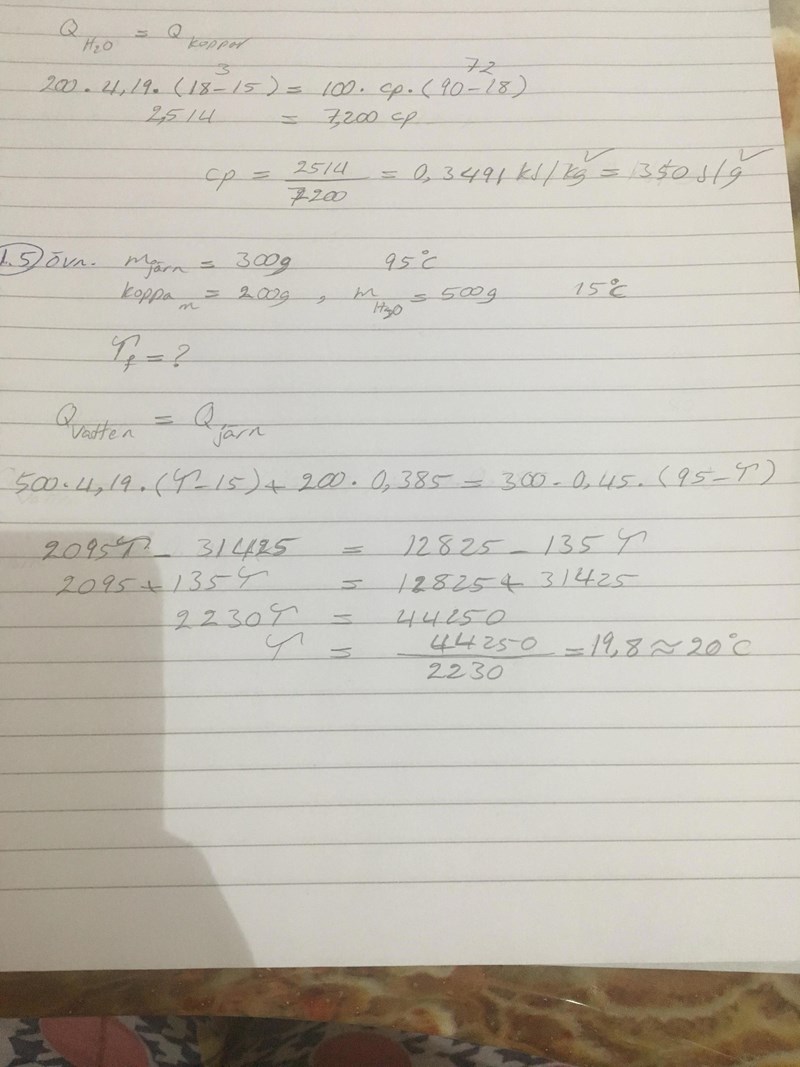 Q H2O = Q koppar
3 72
200 · 4,19 · (18-15) = 100 · cp · (90-18)
2,514 = 7,200 cp
cp = 2514 / 7200 = 0,3491 kJ/kg = 350 J/g
1.5) övn. m järn = 300g 95°C
koppar m = 200g , m H2O = 500g 15°C
T f = ?
Q vatten = Q järn
500 · 4,19 · (T-15) + 200 · 0,385 = 300 · 0,45 · (95-T)
2095T - 31425 = 12825 - 135T
2095 + 135T = 12825 + 31425
2230T = 44250
T = 44250 / 2230 = 19,8 ≈ 20°C